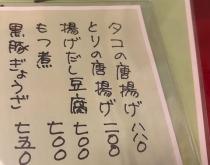 タコの唐揚げ 八八〇
とりの唐揚げ 七〇〇
揚げだし豆腐 七〇〇
もつ煮 七〇〇
黒豚ぎょうざ 七五〇